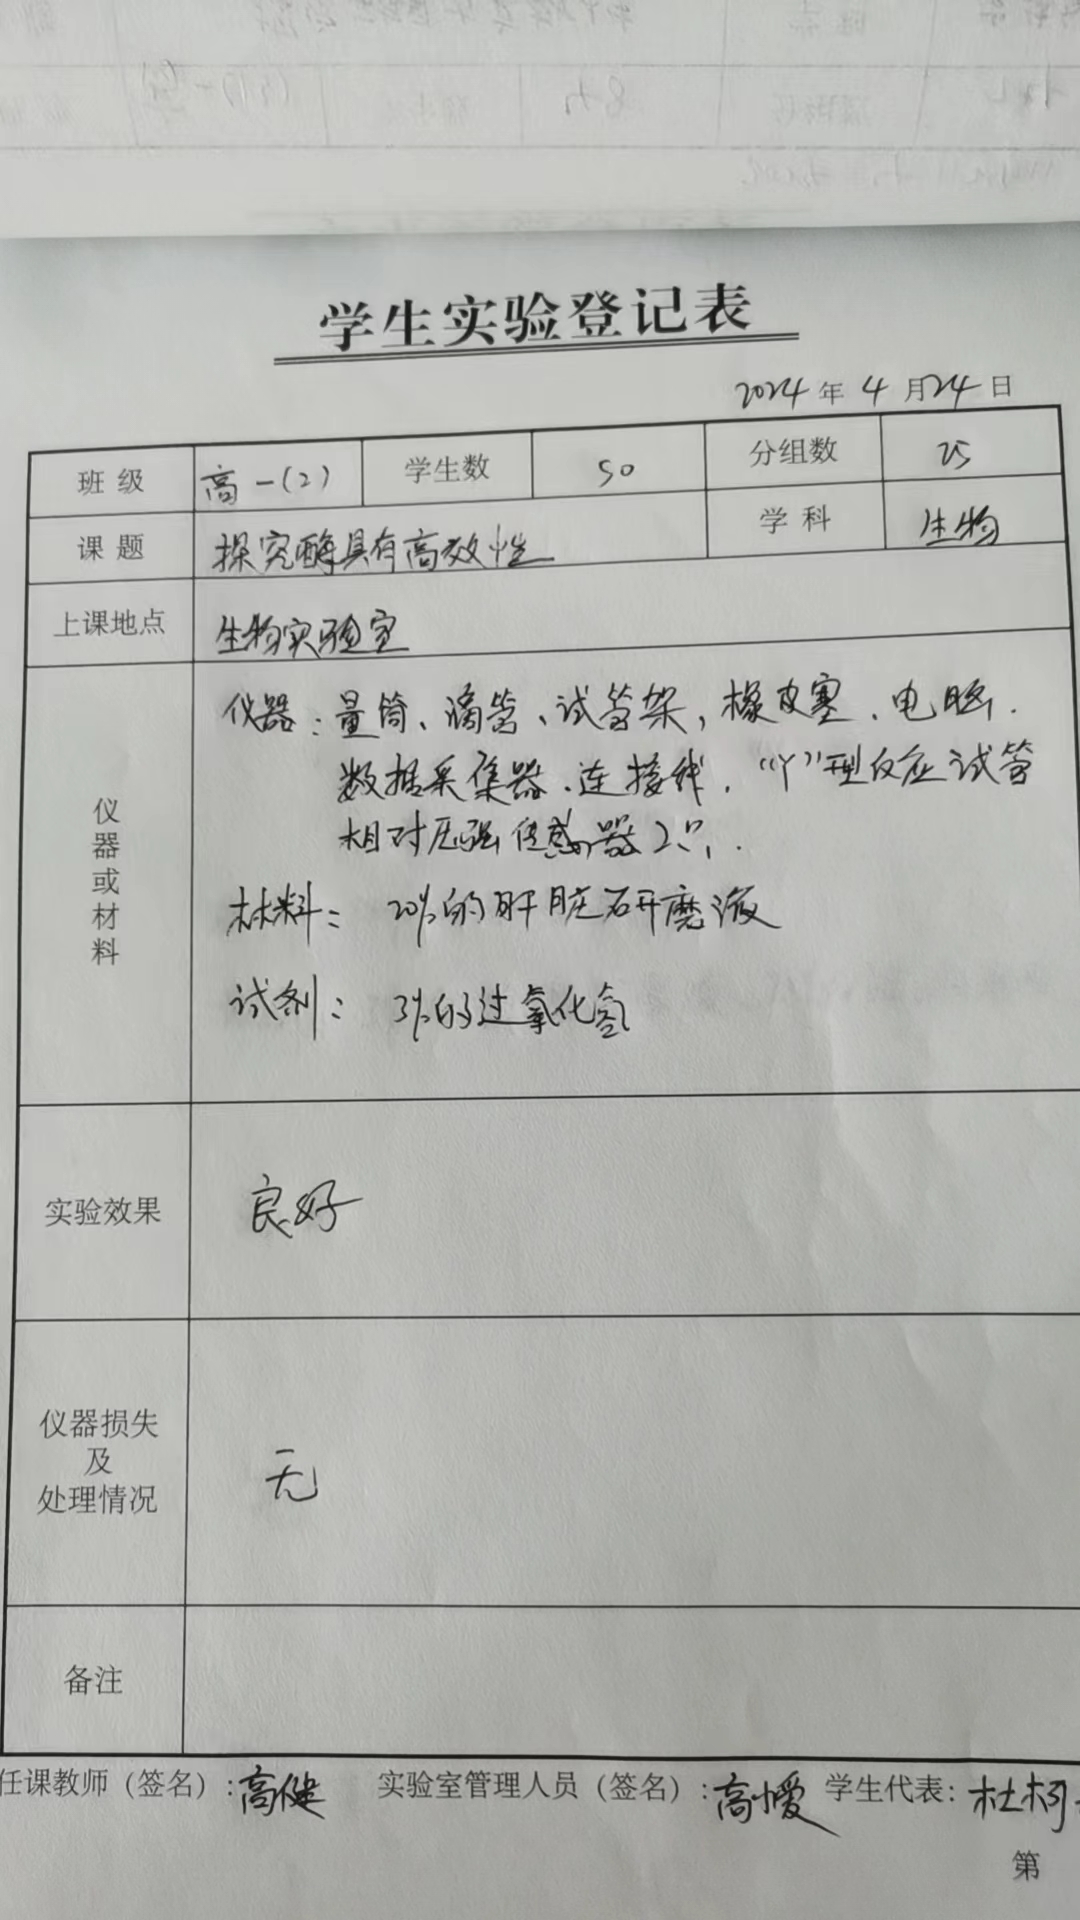 学生实验登记表
2024年4月24日
班级 高一(2) 学生数 50 分组数 25
课题 探究酶具有高效性 学科 生物
上课地点 生物实验室
仪器或材料
仪器:量筒、滴管、试管架,橡皮塞、电脑.
数据采集器、连接线,“Y”型反应试管
相对压强传感器2只.
材料: 20%的肝脏研磨液
试剂: 3%的过氧化氢
实验效果 良好
仪器损失
及
处理情况
无
备注
任课教师(签名):高健 实验室管理人员(签名):高 学生代表:杜柯
第